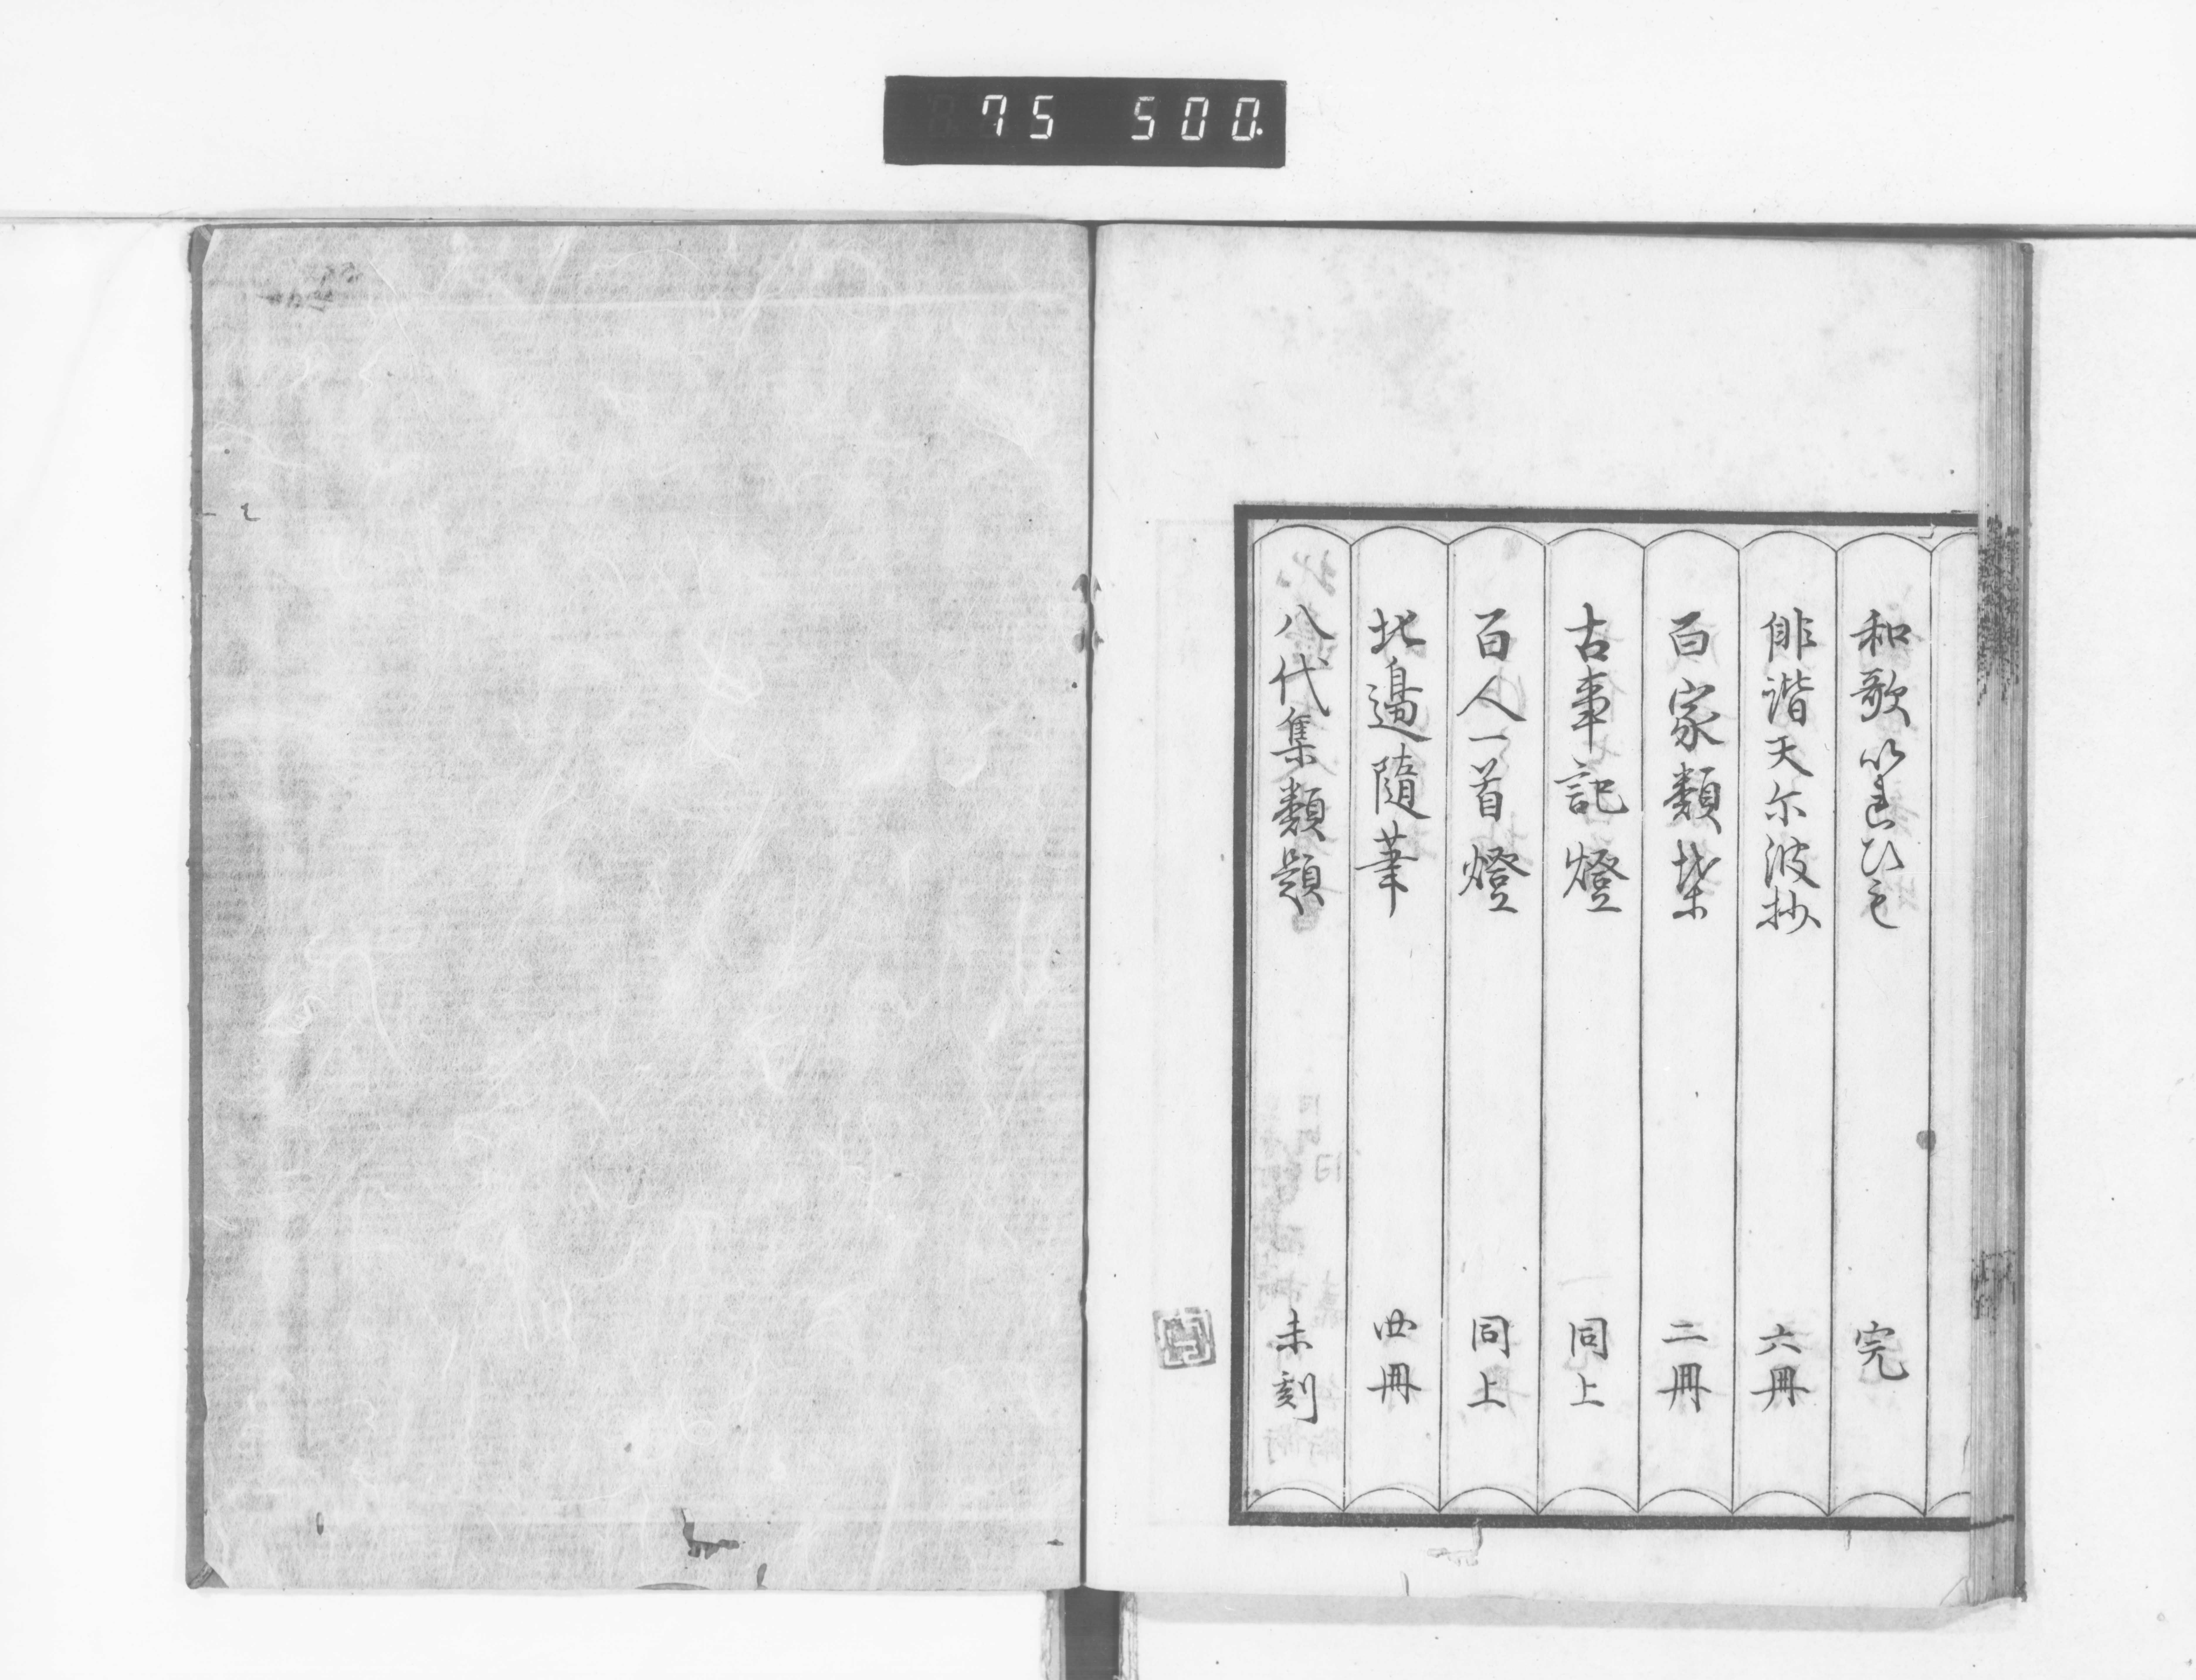 75 500.
和歌いれひも 完
俳諧天尓波抄 六冊
百家類柴 二冊
古事記燈 同上
百人一首燈 同上
北邊隨筆 四冊
八代集類題 未刻